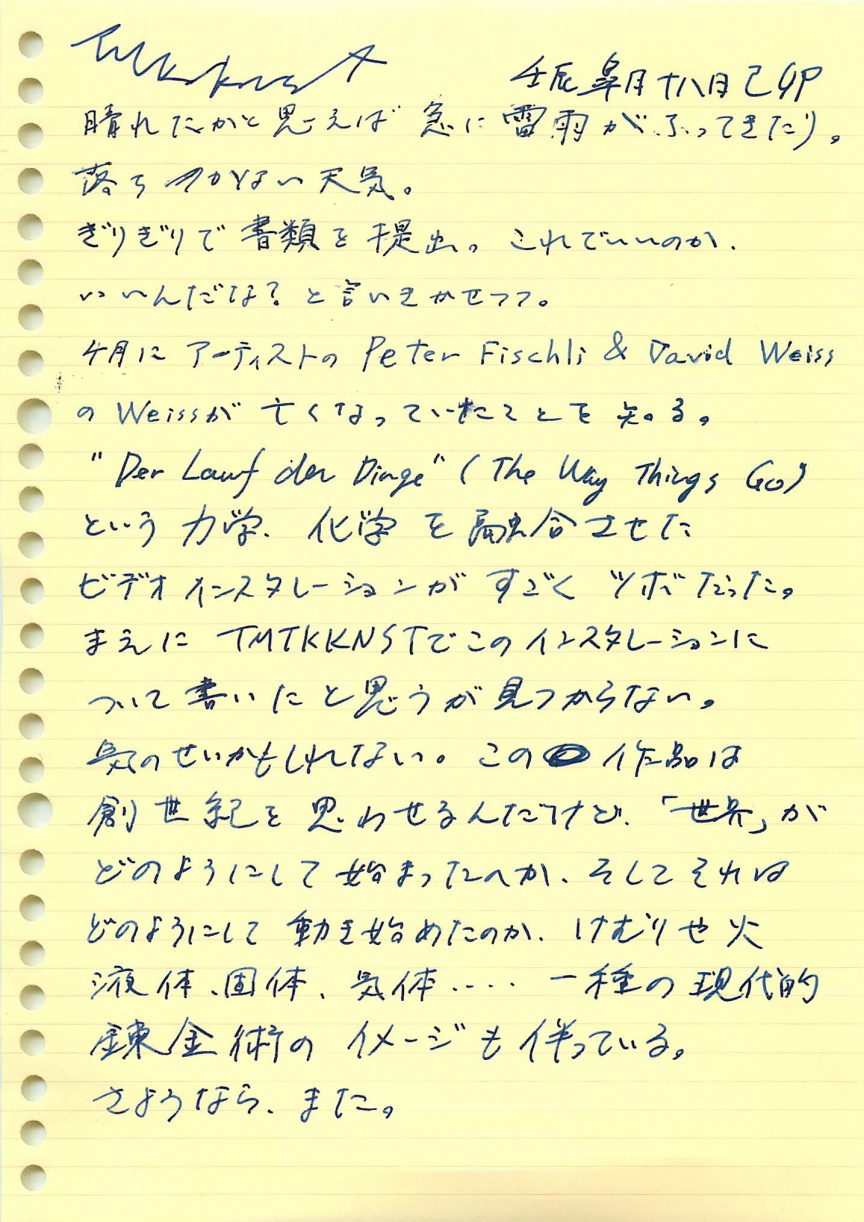 TMTKKNST
壬辰皐月十八日己卯
晴れたかと思えば 急に雷雨がふってきたり。
落ちつかない天気。
ぎりぎりで書類を提出。これでいいのか、
いいんだな?と言いきかせつつ。
4月にアーティストの Peter Fischli & David Weiss
の Weissが亡くなっていたことを知る。
"Der Lauf der Dinge" (The Way Things Go)
という力学、化学を融合させた
ビデオインスタレーションがすごくツボだった。
まえに TMTKKNSTでこのインスタレーションに
ついて書いたと思うが見つからない。
気のせいかもしれない。この作品は
創世紀を思わせるんだけど、「世界」が
どのようにして始まったのか、そしてそれは
どのようにして動き始めたのか、けむりや火
液体、固体、気体‥‥一種の現代的
錬金術のイメージも伴っている。
さようなら、また。